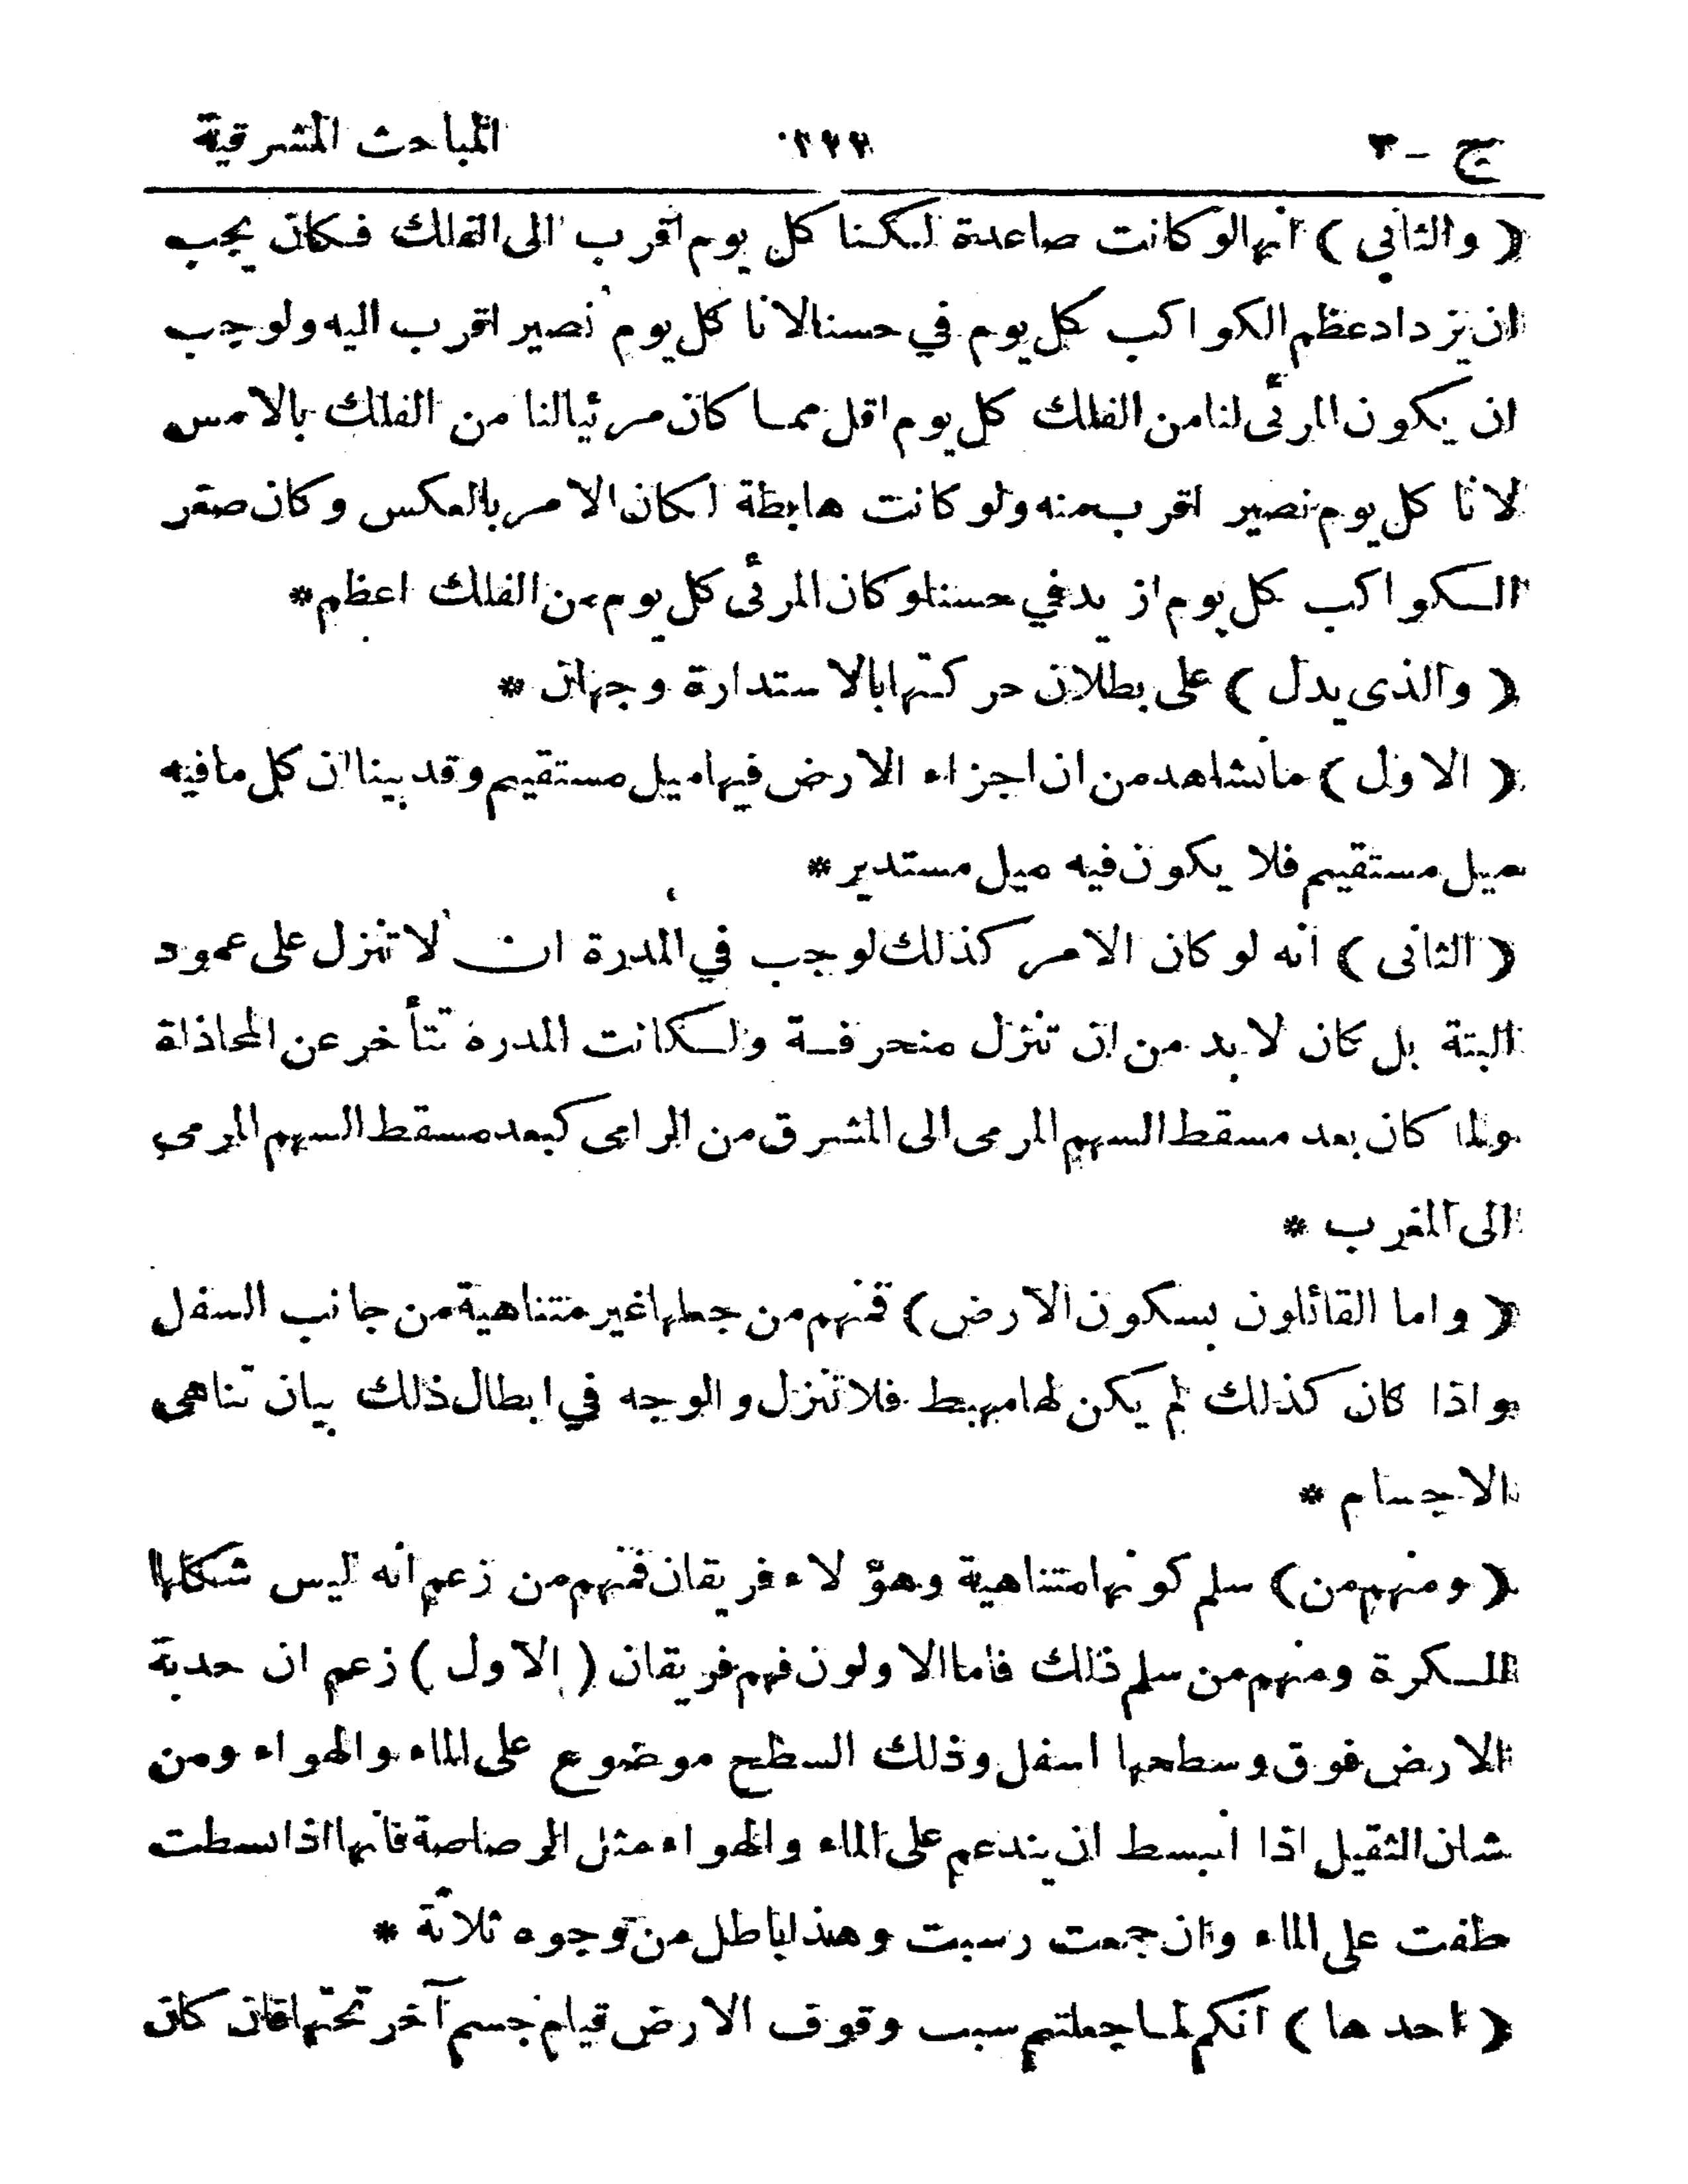 ج – ٣ المباحث المشرقية
( والثانى ) انها لو كانت صاعدة لكنا كل يوم اقرب الى الفلك فكان يجب
ان يزداد عظم الكواكب كل يوم في حسنا لانا كل يوم نصير اقرب اليه ولوجب
ان يكون المرئى لنا من الفلك كل يوم اقل مما كان مرئيا لنا من الفلك بالامس
لانا كل يوم نصير اقرب منه ولو كانت هابطة لكان الامر بالعكس وكان صغر
الكواكب كل يوم ازيد في حسنا وكان المرئى كل يوم من الفلك اعظم*
( والذى يدل ) على بطلان حركتها بالاستدارة وجهان *
( الاول ) ما نشاهد من ان اجزاء الارض فيها ميل مستقيم وقد بينا ان كل ما فيه
ميل مستقيم فلا يكون فيه ميل مستدير *
( الثانى ) انه لو كان الامر كذلك لوجب في المدرة ان لا تنزل على عمود
البتة بل كان لا بد من ان تنزل منحرفة ولكانت المدرة تتأخر عن المحاذاة
ولما كان بعد مسقط السهم المرمى الى المشرق من الرامى كبعد مسقط السهم المرمى
الى المغرب *
( واما القائلون بسكون الارض ) فمنهم من جعلها غير متناهية من جانب السفل
واذا كان كذلك لم يكن لها مهبط فلا تنزل والوجه في ابطال ذلك بيان تناهى
الاجسام *
( ومنهم من ) سلم كونها متناهية وهؤلاء فريقان فمنهم من زعم انه ليس شكلها
الكرة ومنهم من سلم ذلك فاما الاولون فهم فريقان ( الاول ) زعم ان حدبة
الارض فوق وسطحها اسفل وذلك السطح موضوع على الماء والهواء ومن
شان الثقيل اذا انبسط ان يندعم على الماء والهواء مثل الرصاصة فانها اذا بسطت
طفت على الماء وان جمعت رسبت وهذا باطل من وجوه ثلاثة *
( احدها ) انكم لما جعلتم سبب وقوف الارض قيام جسم آخر تحتها فان كان